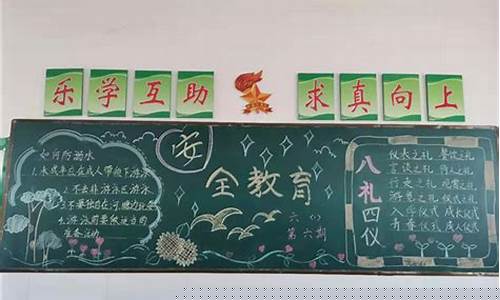 乐学互助
求真向上
如何防溺水
1.未成年应在成人带领下游泳
2.不去非游泳区游泳
3.不要独自在河塘边玩耍
4.游泳前要做适当的
准备活动
安全教育
六(1)
第六期
八礼四仪
仪表之礼 餐饮之礼
言谈之礼 待人之礼
行走之礼 观赏之礼
游览之礼 仪式之礼
入学仪式 成长仪式
青春仪式 成人仪式